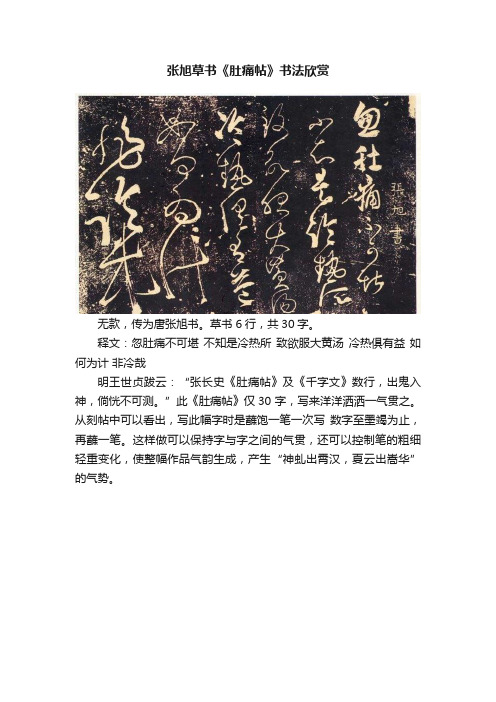 张旭草书《肚痛帖》书法欣赏
張旭書
忽肚痛不可堪
不知是冷熱所
致欲服大黄湯
冷熱俱有益
如何為計
非冷哉
无款，传为唐张旭书。草书6行，共30字。
释文：忽肚痛不可堪 不知是冷热所 致欲服大黄汤 冷热俱有益 如
何为计 非冷哉
明王世贞跋云：“张长史《肚痛帖》及《千字文》数行，出鬼入
神，倘恍不可测。”此《肚痛帖》仅30字，写来洋洋洒洒一气贯之。
从刻帖中可以看出，写此幅字时是蘸饱一笔一次写 数字至墨竭为止，
再蘸一笔。这样做可以保持字与字之间的气贯，还可以控制笔的粗细
轻重变化，使整幅作品气韵生成，产生“神虬出霄汉，夏云出嵩华”
的气势。